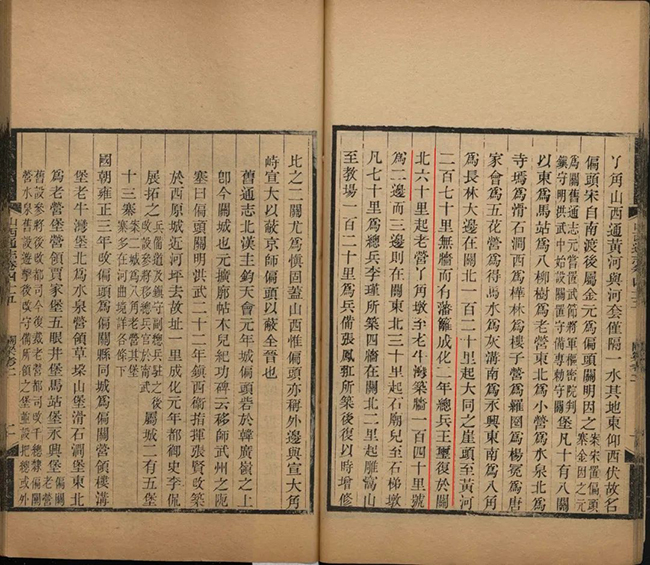 丫角山西通黃河與河套僅隔一水其地東仰西伏故名
偏頭宋自南渡後屬金元爲偏頭關明因之
案朱置偏頭
寨金因之元
爲關舊通志元嘗置武節將軍樞密院判
鎭守明洪武中始設關置守備專勑守關
堡凡十有八關
以東爲馬站爲八柳樹爲老營東北爲小營爲水泉北爲
寺墕爲滑石澗西爲樺林爲樓子營爲羅圈爲楊冕爲唐
家會爲五花營爲得馬水爲灰溝南爲永興東南爲八角
爲長林大邊在關北一百二十里起大同之崖頭至黃河
二百七十里無牆而有藩籬成化二年總兵王璽復於關
北六十里起老營丫角墩至老牛灣築牆一百四十里號
爲二邊而三邊則在關東北三十里起石廟兒至石梯墩
凡七十里爲總兵李瑾所築四牆在關北二里起鷹窩山
至教場一百二十里爲兵備張鳳羾所築後復以時增修
比之二關尤爲愼固蓋山西惟偏頭亦稱外邊與宣大角
峙宣大以蔽京師偏頭以蔽全晉也
舊通志北漢主鈞天會元年城偏頭砦於韓廣嶺之上
卽今關城也元擴廓帖木兒紀功碑云移師武州之陒
寨曰偏頭關明洪武二十二年鎭西衛指揮張賢改築
於西原城近河坪去故址一里成化元年都御史李侃
展拓之
兵備道及鎭守副總兵駐之後
改設參將移總兵官於南武
屬城二有五堡
十三寨
案二城爲八角老營其堡
寨多在河曲境詳各條下
國朝雍正三年改偏頭爲偏關縣同城爲偏關營領樓溝
堡老牛灣堡北爲水泉營領草垜山堡滑石澗堡東北
爲老營堡營領賈家堡五眼井堡馬站堡永興堡
偏關
老營
舊設參將後改都司今復裁老營都司改千總隸偏關
營水泉舊設遊擊後改守備所領之堡並設把總或外